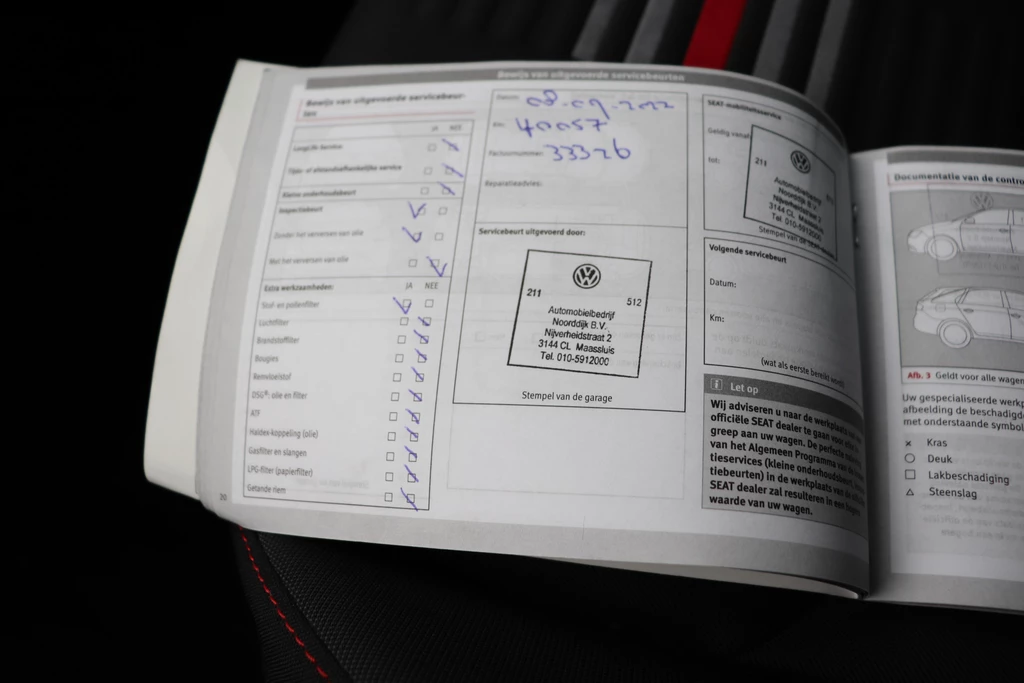 Bewijs van uitgevoerde servicebeurten
Bewijs van uitgevoerde servicebeur-
ten
JA NEE
LongLife-Service
Tijds- of afstandsafhankelijke service
Kleine onderhoudsbeurt
Inspectiebeurt
Zonder het verversen van olie
Met het verversen van olie
Extra werkzaamheden: JA NEE
Stof- en pollenfilter
Luchtfilter
Brandstoffilter
Bougies
Remvloeistof
DSG®: olie en filter
ATF
Haldex-koppeling (olie)
Gasfilter en slangen
LPG-filter (papierfilter)
Getande riem
20
Datum:
Km: 40057
Factuurnummer: 33326
Reparatieadvies:
Servicebeurt uitgevoerd door:
211 512
Automobielbedrijf
Noorddijk B.V.
Nijverheidstraat 2
3144 CL Maassluis
Tel. 010-5912000
Stempel van de garage
SEAT-mobiliteitsservice
Geldig vanaf
tot:
211
Automobielbedrijf
Noorddijk B.V.
Nijverheidstraat 2
3144 CL Maassluis
Tel. 010-5912000
Stempel van de
Volgende servicebeurt
Datum:
Km:
(wat als eerste bereikt wordt)
i Let op
Wij adviseren u naar de werkplaats van
officiële SEAT dealer te gaan voor
greep aan uw wagen. De perfecte
van het Algemeen Programma van
tieservices (kleine onderhoudsbeurt,
tiebeurten) in de werkplaats van de
SEAT dealer zal resulteren in een
waarde van uw wagen.
Documentatie van de contro
Afb. 3 Geldt voor alle wagen
Uw gespecialiseerde werkp
afbeelding de beschadigd
met onderstaande symbol
× Kras
○ Deuk
□ Lakbeschadiging
△ Steenslag